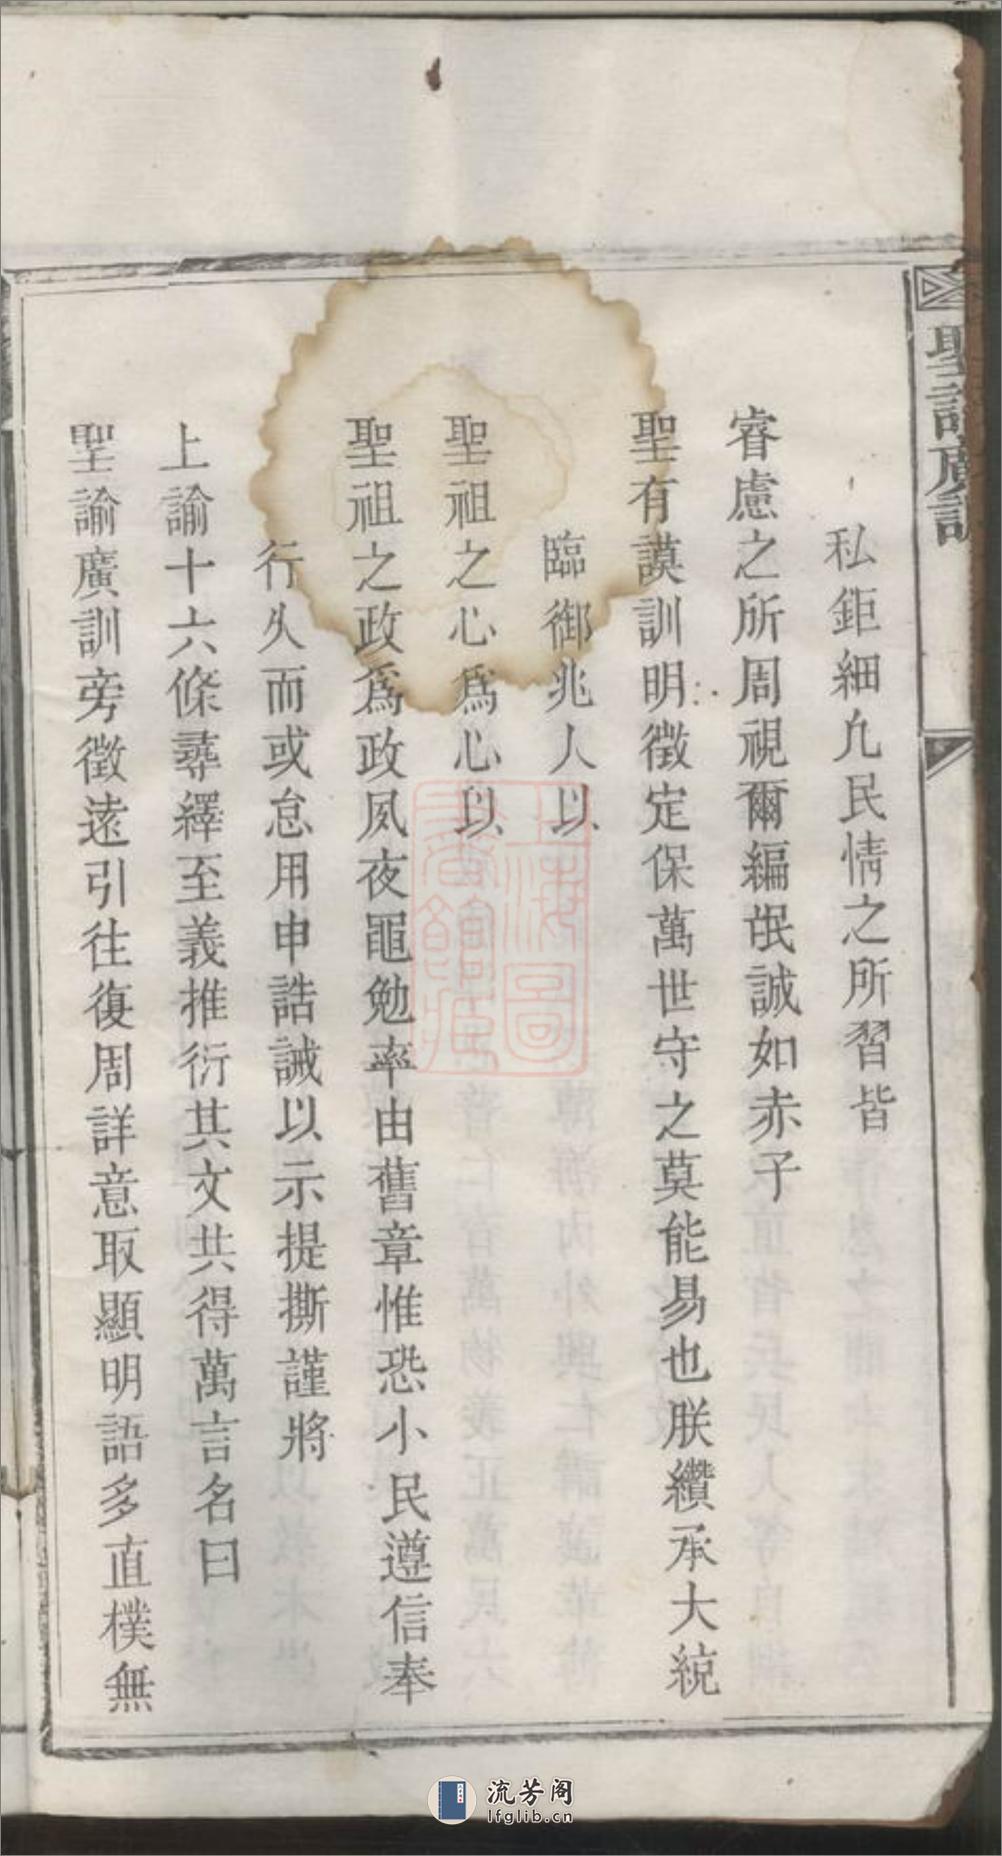 聖諭廣訓
私鉅細凢民情之所習皆
睿慮之所周視爾編氓誠如赤子
聖有謨訓明徵定保萬世守之莫能易也朕纘承大統
臨御兆人以
聖祖之心爲心以
聖祖之政爲政夙夜黽勉率由舊章惟恐小民遵信奉
行久而或怠用申誥誡以示提撕謹將
上諭十六條尋繹至義推衍其文共得萬言名曰
聖諭廣訓旁徵遠引往復周詳意取顯明語多直樸無
上海圖
書館藏
流芳阁
lfglib.cn